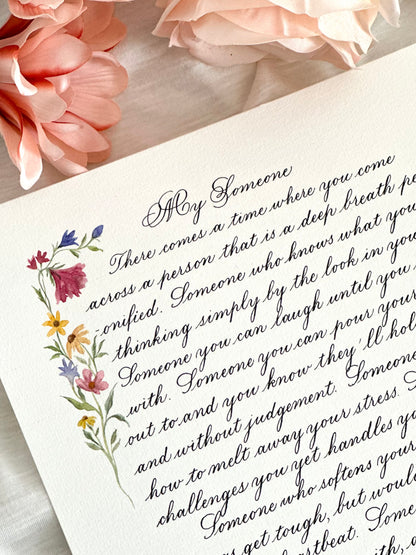 My Someone
There comes a time where you come
across a person that is a deep breath
-onified. Someone who knows what you
thinking simply by the look in
Someone you can laugh until you
with. Someone you can pour your
out to and you know they'll
and without judgement. Someone
how to melt away your stress.
challenges you yet handles
Someone who softens your
get tough, but would
Some